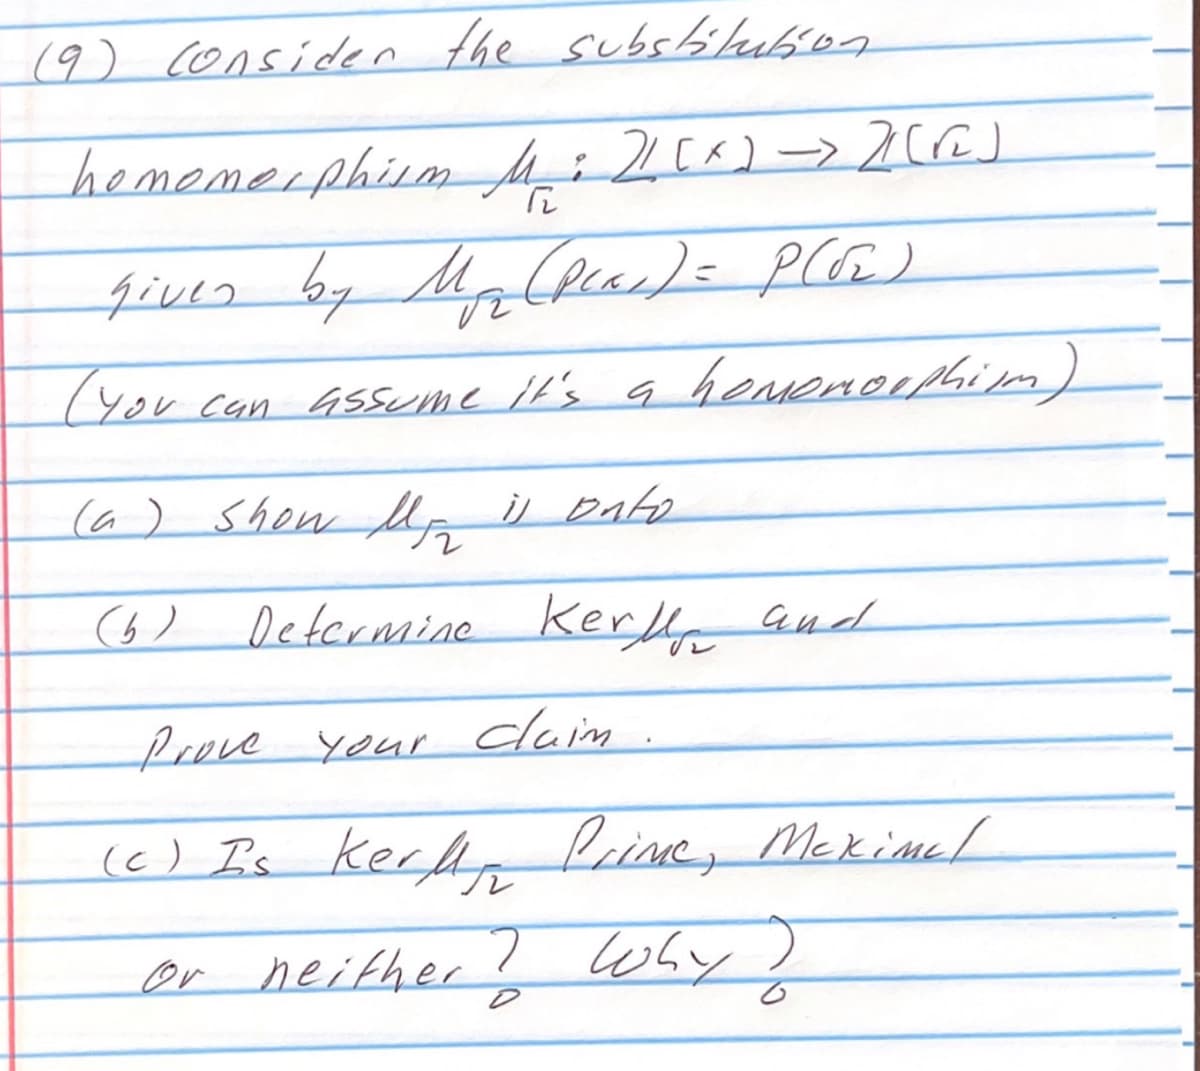 (9) Consider the substitution
homomorphism μ_√2 : ℤ[x] → ℤ[√2]
given by μ_√2 (p(x)) = p(√2)
(you can assume it's a homomorphism)
(a) show μ_√2 is onto
(b) Determine Ker μ_√2 and
Prove your claim.
(c) Is Ker μ_√2 Prime, Maximal
or neither? Why?